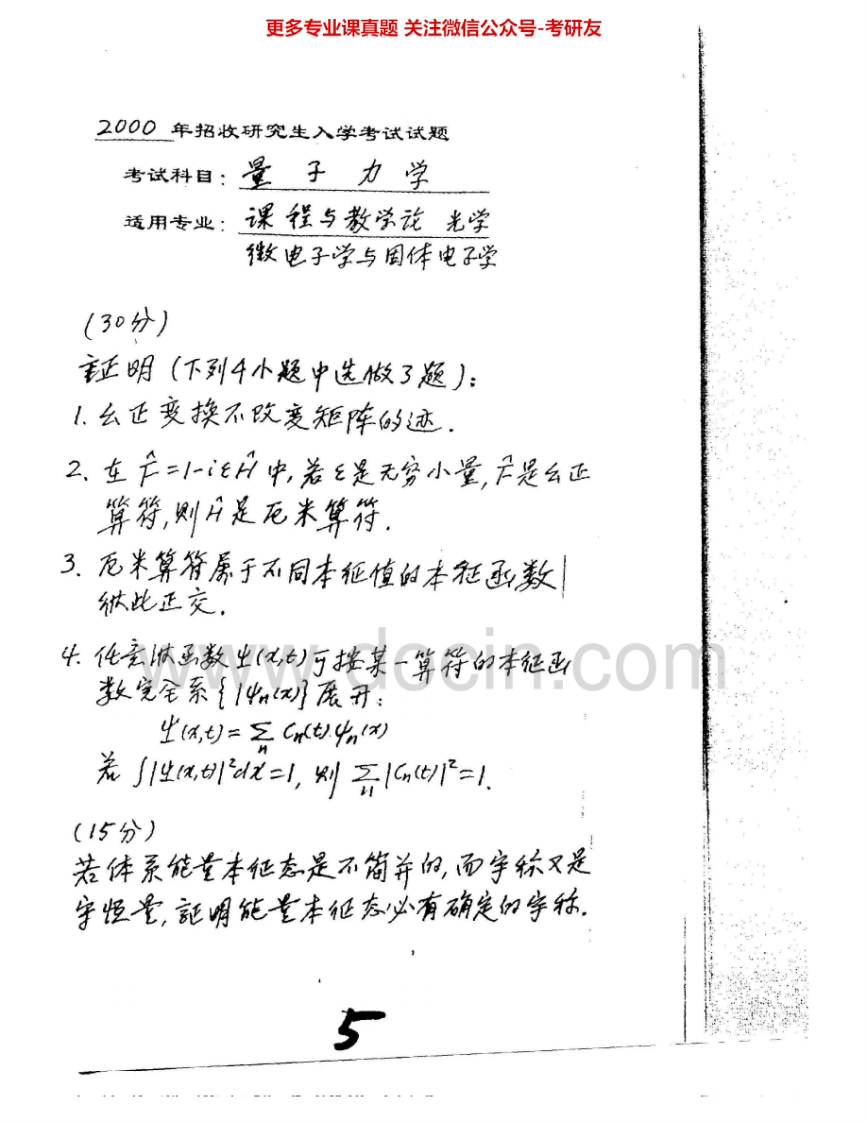 更多专业课真题 关注微信公众号-考研友
2000 年招收研究生入学考试试题
考试科目: 量子力学
适用专业: 课程与教学论 光学
微电子学与固体电子学
(30分)
証明(下列4小题中选做3题):
1. 幺正变换不改变矩阵的迹.
2. 在 F̂=1-iεĤ 中,若ε是无穷小量,F̂是幺正
算符,则Ĥ是厄米算符.
3. 厄米算符属于不同本征值的本征函数
彼此正交.
4. 任意状函数Ψ(x,t)可按某一算符的本征函
数完全系{ψn(x)}展开:
Ψ(x,t)=∑n Cn(t)ψn(x)
若 ∫|Ψ(x,t)|²dx=1, 则 ∑n|Cn(t)|²=1.
www.docin.com
(15分)
若体系能量本征态是不简并的,而宇称又是
守恒量,証明能量本征态必有确定的宇称.
5